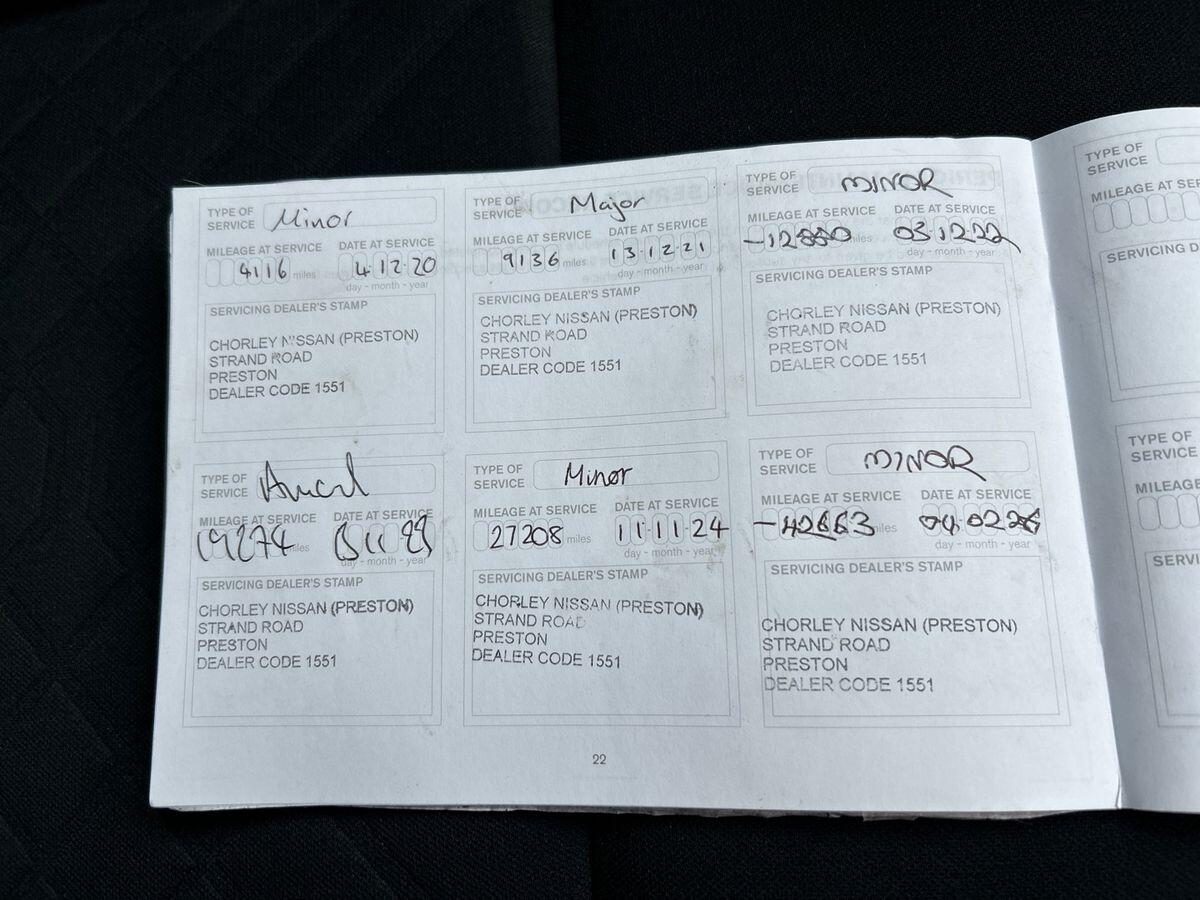 TYPE OF SERVICE Minor
MILEAGE AT SERVICE DATE AT SERVICE
4116 miles 4 12 20
day - month - year
SERVICING DEALER'S STAMP
CHORLEY NISSAN (PRESTON)
STRAND ROAD
PRESTON
DEALER CODE 1551
TYPE OF SERVICE Major
MILEAGE AT SERVICE DATE AT SERVICE
9136 miles 13·12·21
day - month - year
SERVICING DEALER'S STAMP
CHORLEY NISSAN (PRESTON)
STRAND ROAD
PRESTON
DEALER CODE 1551
TYPE OF SERVICE MINOR
MILEAGE AT SERVICE DATE AT SERVICE
miles 03.12.22
day - month - year
SERVICING DEALER'S STAMP
CHORLEY NISSAN (PRESTON)
STRAND ROAD
PRESTON
DEALER CODE 1551
TYPE OF SERVICE
MILEAGE AT SERVICE DATE AT SERVICE
19274 miles
day - month - year
SERVICING DEALER'S STAMP
CHORLEY NISSAN (PRESTON)
STRAND ROAD
PRESTON
DEALER CODE 1551
TYPE OF SERVICE Minor
MILEAGE AT SERVICE DATE AT SERVICE
27208 miles 11·11·24
day - month - year
SERVICING DEALER'S STAMP
CHORLEY NISSAN (PRESTON)
STRAND ROAD
PRESTON
DEALER CODE 1551
TYPE OF SERVICE MINOR
MILEAGE AT SERVICE DATE AT SERVICE
-42663 miles
day - month - year
SERVICING DEALER'S STAMP
CHORLEY NISSAN (PRESTON)
STRAND ROAD
PRESTON
DEALER CODE 1551
22
TYPE OF
SERVICE
MILEAGE AT
SERVICING
TYPE OF
SERVICE
MILEAGE